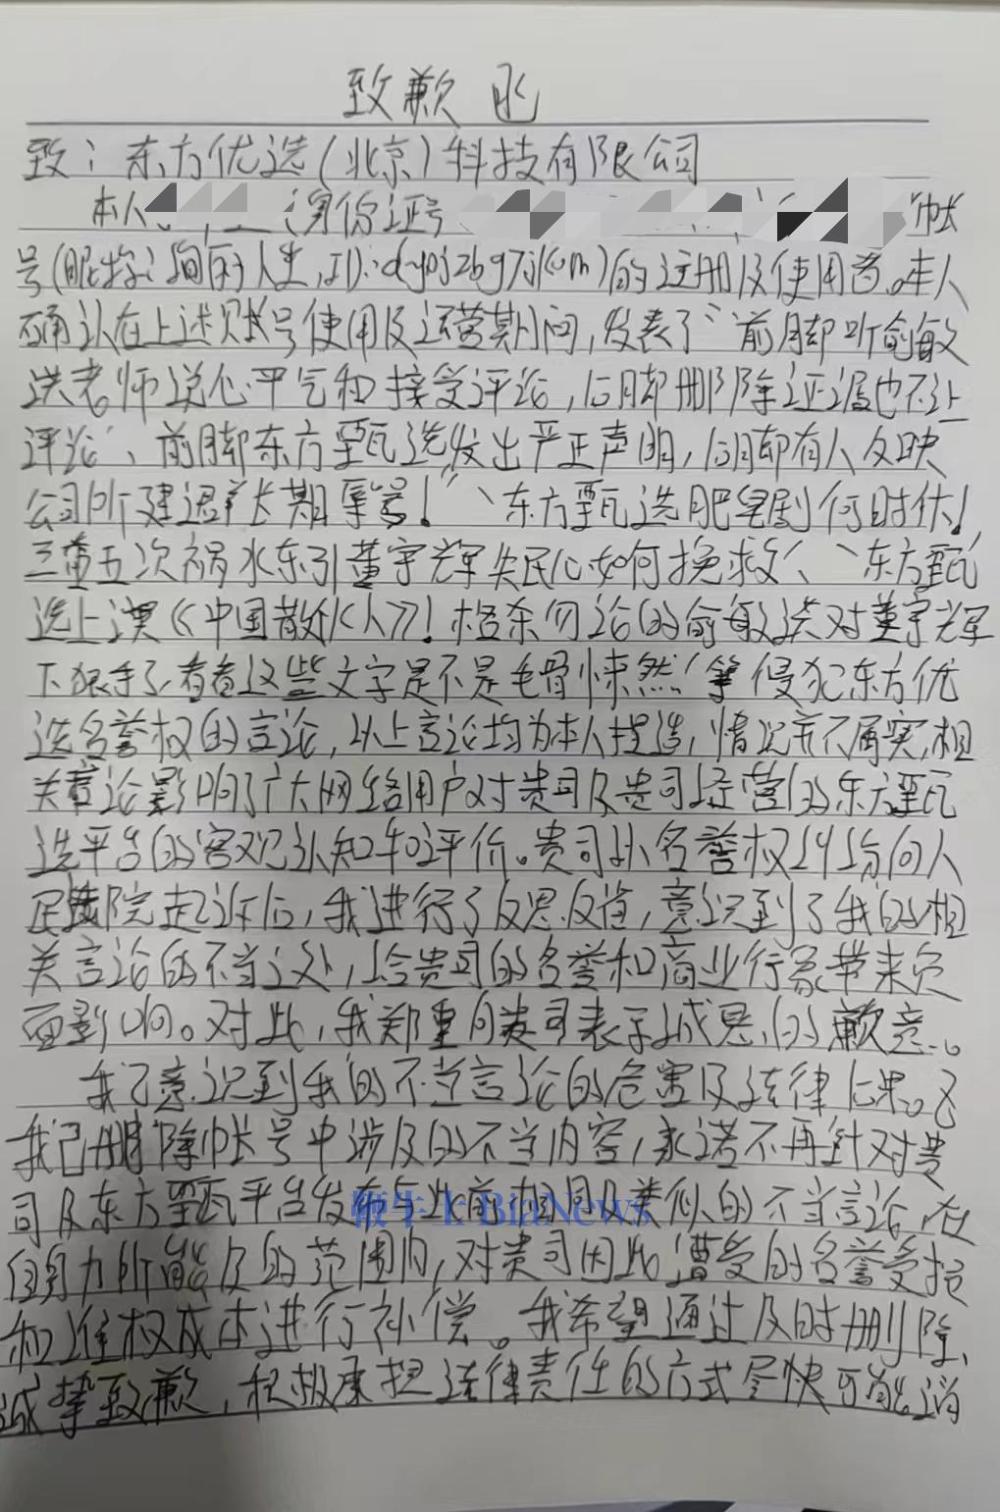 致歉函
致：东方优选（北京）科技有限公司
本人 身份证号 帐
号(昵称： 的人生,ID: )的注册及使用者。本人
确认在上述账号使用及运营期间,发表了“前脚听俞敏
洪老师说心平气和接受评论,后脚删除证据也不让
评论”、前脚东方甄选发出严正声明,后脚有人反映
公司所建退羊长期辱骂！”、东方甄选肥皂剧何时休！
三番五次祸水东引董宇辉失民心如何挽救“、”东方甄
选上演《中国散伙人》！格杀勿论的俞敏洪对董宇辉
下狠手了,看看这些文字是不是毛骨悚然“等侵犯东方优
选名誉权的言论,以上言论均为本人捏造,情况并不属实,相
关言论影响了广大网络用户对贵司及贵司经营的东方甄
选平台的客观认知和评价。贵司就名誉权纠纷向人
民法院起诉后,我进行了反思反省,意识到了我的相
关言论的不当之处,给贵司的名誉和商业行象带来负
面影响。对此,我郑重向贵司表示诚恳的歉意。
我已意识到我的不当言论的危害及法律后果。
我已删除帐号中涉及的不当内容,承诺不再针对贵
司及东方甄选平台发布与此前相同及类似的不当言论,在
自身力所能及的范围内,对贵司因此遭受的名誉受损
和维权成本进行补偿。我希望通过及时删除、
诚挚致歉,积极承担法律责任的方式尽快可能消
鞭牛士 BiaNews